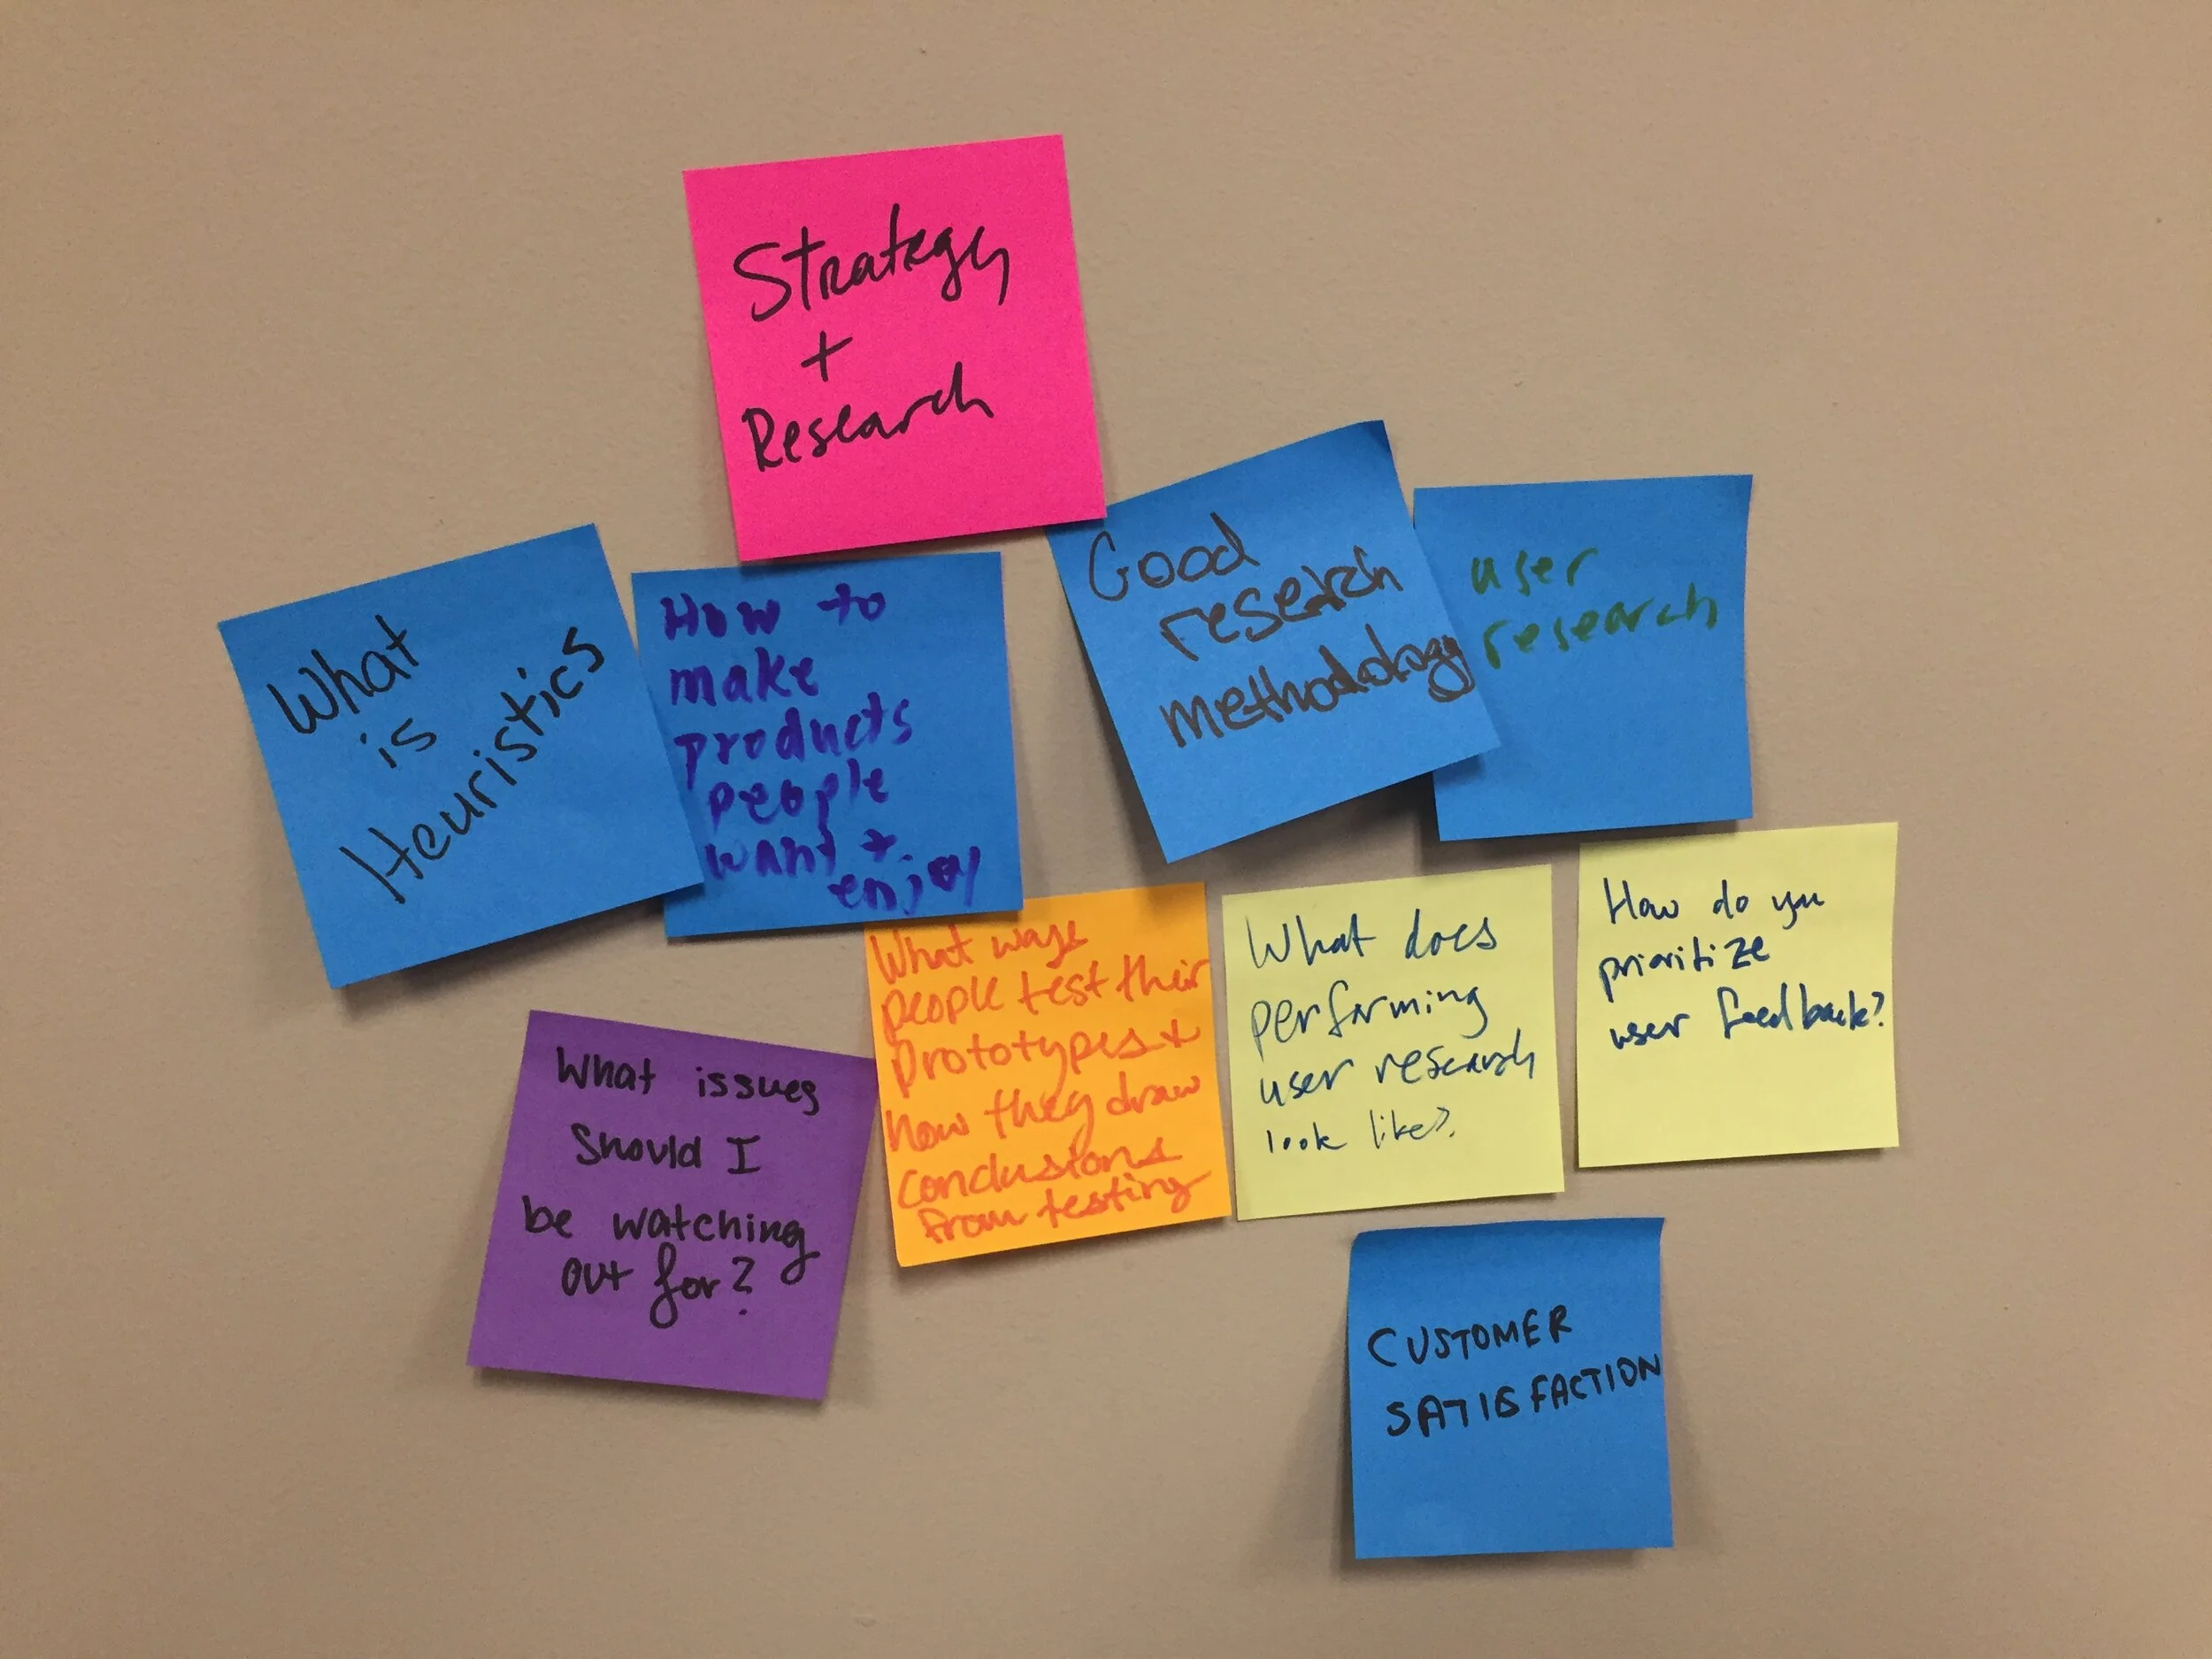 Strategy
+
Research
What
is
Heuristics
How to
make
products
people
want +
enjoy
Good
research
methodology
user
research
What issues
should I
be watching
out for?
What ways
people test their
prototypes +
how they draw
conclusions
from testing
What does
performing
user research
look like?
How do you
prioritize
user feedback?
CUSTOMER
SATISFACTION